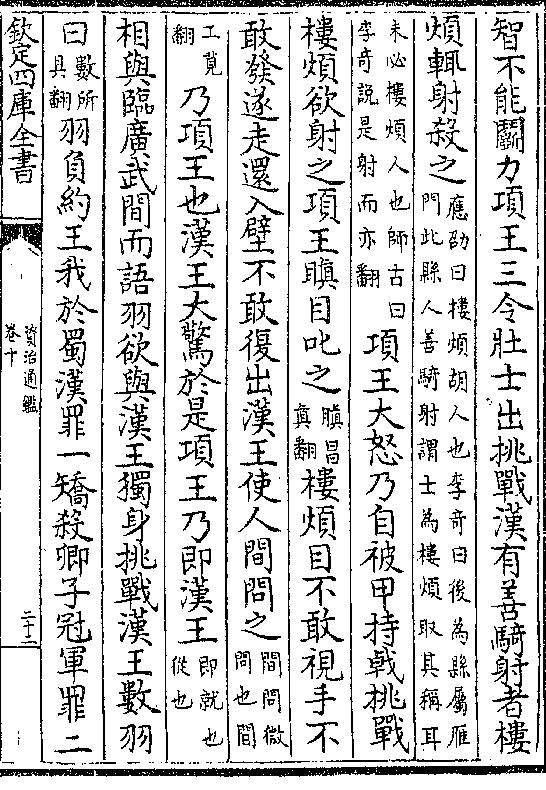 智不能鬭力項王三令壯士出挑戰漢有善騎射者樓
煩輒射殺之應劭曰樓煩胡人也李竒曰後為縣屬雁門此縣人善騎射謂士為樓煩取其稱耳
未必樓煩人也師古曰李竒説是射而亦翻項王大怒乃自被甲持戟挑戰
樓煩欲射之項王瞋目叱之瞋昌真翻樓煩目不敢視手不
敢發遂走還入壁不敢復出漢王使人間問之間問微問也間
工莧翻乃項王也漢王大驚於是項王乃即漢王即就也從也
相與臨廣武間而語羽欲與漢王獨身挑戰漢王數羽
曰數所具翻羽負約王我於蜀漢罪一矯殺卿子冠軍罪二
欽定四庫全書
資治通鑑
卷十
二十二